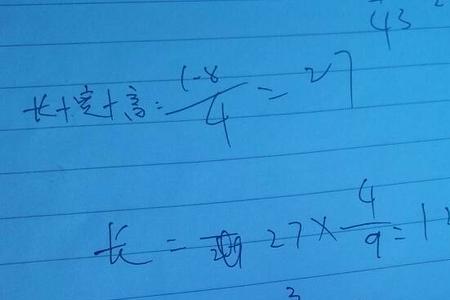 43
长+宽+高=108/4=27
长=27×4/9=1
3